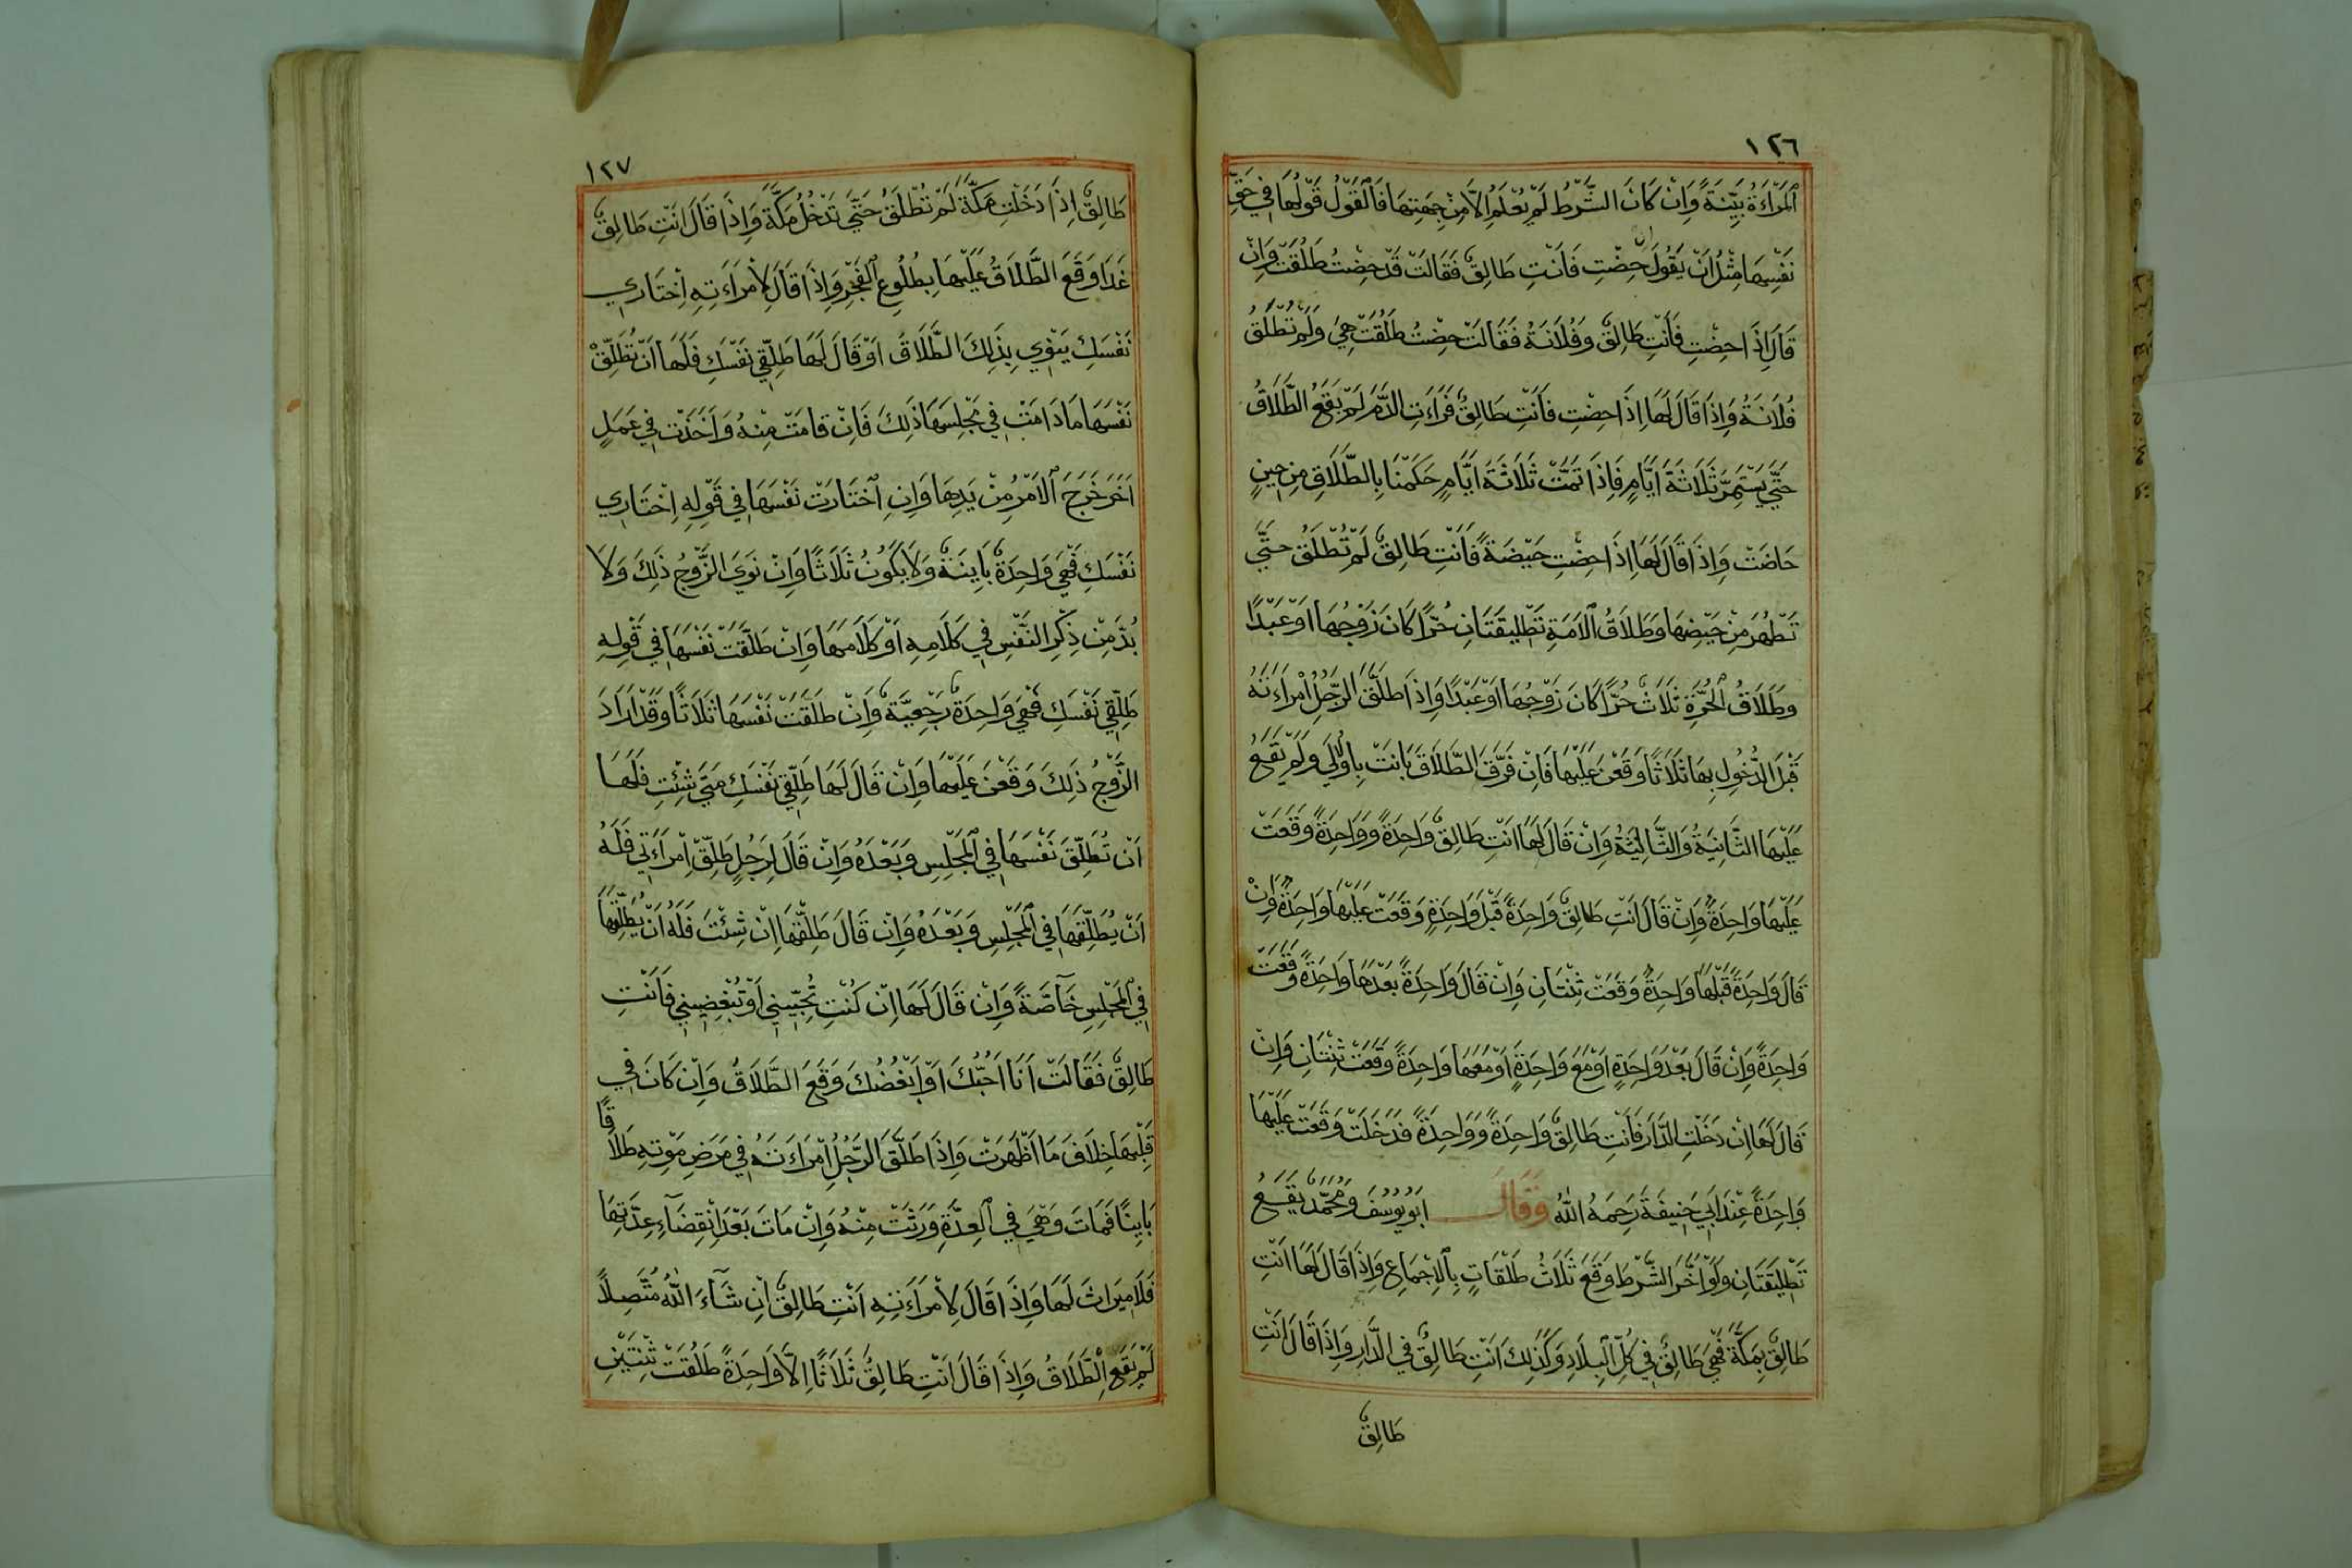 ١٢٦
اَلْمَرْأَةُ بَيِّنَةً وَاِنْ كَانَ الشَّرْطُ لَمْ يُعْلَمْ اِلَّا مِنْ جِهَتِهَا فَالْقَوْلُ قَوْلُهَا فِي حَقِّ
نَفْسِهَا مِثْلُ اَنْ يَقُولَ اِنْ حِضْتِ فَاَنْتِ طَالِقٌ فَقَالَتْ قَدْ حِضْتُ طَلُقَتْ وَاِنْ
قَالَ اِذَا حِضْتِ فَاَنْتِ طَالِقٌ وَفُلَانَةُ فَقَالَتْ حِضْتُ طَلُقَتْ هِيَ وَلَمْ تُطَلَّقْ
فُلَانَةُ وَاِذَا قَالَ لَهَا اِذَا حِضْتِ فَاَنْتِ طَالِقٌ فَرَاَتِ الدَّمَ لَمْ يَقَعْ الطَّلَاقُ
حَتَّى يَسْتَمِرَّ ثَلَاثَةَ اَيَّامٍ فَاِذَا تَمَّتْ ثَلَاثَةَ اَيَّامٍ حَكَمْنَا بِالطَّلَاقِ مِنْ حِينٍ
حَاضَتْ وَاِذَا قَالَ لَهَا اِذَا حِضْتِ حَيْضَةً فَاَنْتِ طَالِقٌ لَمْ تُطْلَقْ حَتَّى
تَطْهُرَ مِنْ حَيْضِهَا وَطَلَاقُ الْاَمَةِ تَطْلِيقَتَانِ حُرًّا كَانَ زَوْجُهَا اَوْ عَبْدًا
وَطَلَاقُ الْحُرَّةِ ثَلَاثٌ حُرًّا كَانَ زَوْجُهَا اَوْ عَبْدًا وَاِذَا طَلَّقَ الرَّجُلُ امْرَاَتَهُ
قَبْلَ الدُّخُولِ بِهَا ثَلَاثًا وَقَعْنَ عَلَيْهَا فَاِنْ فَرَّقَ الطَّلَاقَ بَانَتْ بِاولٰي وَلَمْ يَقَعْ
عَلَيْهَا الثَّانِيَةُ وَالثَّالِثَةُ وَاِنْ قَالَ لَهَا اَنْتِ طَالِقٌ وَاحِدَةً وَوَاحِدَةً وَقَعَتْ
عَلَيْهَا وَاحِدَةٌ وَاِنْ قَالَ اَنْتِ طَالِقٌ وَاحِدَةً قَبْلَ وَاحِدَةٍ وَقَعَتْ عَلَيْهَا وَاحِدَةٌ وَاِنْ
قَالَ وَاحِدَةً قَبْلَهَا وَاحِدَةٌ وَقَعَتْ ثِنْتَانِ وَاِنْ قَالَ وَاحِدَةً بَعْدَهَا وَاحِدَةٌ وَقَعَتْ
وَاحِدَةً وَاِنْ قَالَ بَعْدَ وَاحِدَةٍ اَوْ مَعَ وَاحِدَةٍ اَوْ مَعَهَا وَاحِدَةٌ وَقَعَتْ ثِنْتَانِ وَاِنْ
قَالَ لَهَا اِنْ دَخَلْتِ الدَّارَ فَاَنْتِ طَالِقٌ وَاحِدَةً وَوَاحِدَةً فَدَخَلَتْ وَقَعَتْ عَلَيْهَا
وَاحِدَةً عِنْدَ اَبِي حَنِيفَةَ رَحِمَهُ اللّٰهُ وَقَالَ اَبُو يُوسُفَ وَمُحَمَّدٌ يَقَعُ
تَطْلِيقَتَانِ وَلَوْ اَخَّرَ الشَّرْطَ وَقَعَ ثَلَاثُ طَلْقَاتٍ بِالْاِجْمَاعِ وَاِذَا قَالَ لَهَا اَنْتِ
طَالِقٌ بِمَكَّةَ فَهِيَ طَالِقٌ فِي كُلِّ الْبِلَادِ وَكَذٰلِكَ اَنْتِ طَالِقٌ فِي الدَّارِ وَاِذَا قَالَ اَنْتِ
طَالِقٌ
١٢٧
طَالِقٌ اِذَا دَخَلْتِ مَكَّةَ لَمْ تُطْلَقْ حَتَّى تَدْخُلَ مَكَّةَ وَاِذَا قَالَ اَنْتِ طَالِقٌ
غَدًا وَقَعَ الطَّلَاقُ عَلَيْهَا بِطُلُوعِ الْفَجْرِ وَاِذَا قَالَ لِاْمْرَاَتِهِ اِخْتَارِي
نَفْسَكِ يَنْوِي بِذٰلِكَ الطَّلَاقَ اَوْ قَالَ لَهَا طَلِّقِي نَفْسَكِ فَلَهَا اَنْ تُطَلِّقَ
نَفْسَهَا مَادَامَتْ فِي مَجْلِسِهَا ذٰلِكَ فَاِنْ قَامَتْ مِنْهُ وَاَخَذَتْ فِي عَمَلٍ
اَخَرَ خَرَجَ الْاَمْرُ مِنْ يَدِهَا وَاِنِ اخْتَارَتْ نَفْسَهَا فِي قَوْلِهِ اِخْتَارِي
نَفْسَكِ فَهِيَ وَاحِدَةٌ بَايِنَةٌ وَلَا يَكُونُ ثَلَاثًا وَاِنْ نَوَى الزَّوْجُ ذٰلِكَ وَلَا
بُدَّ مِنْ ذِكْرِ النَّفْسِ فِي كَلَامِهِ اَوْ كَلَامِهَا وَاِنْ طَلَّقَتْ نَفْسَهَا فِي قَوْلِهِ
طَلِّقِي نَفْسَكِ فَهِيَ وَاحِدَةٌ رَجْعِيَّةٌ وَاِنْ طَلَّقَتْ نَفْسَهَا ثَلَاثًا وَقَدْ اَرَادَ
الزَّوْجُ ذٰلِكَ وَقَعْنَ عَلَيْهَا وَاِنْ قَالَ لَهَا طَلِّقِي نَفْسَكِ مَتَى شِئْتِ فَلَهَا
اَنْ تُطَلِّقَ نَفْسَهَا فِي الْمَجْلِسِ وَبَعْدَهُ وَاِنْ قَالَ لِرَجُلٍ طَلِّقْ اِمْرَاَتِي فَلَهُ
اَنْ يُطَلِّقَهَا فِي الْمَجْلِسِ وَبَعْدَهُ وَاِنْ قَالَ طَلِّقْهَا اِنْ شِئْتَ فَلَهُ اَنْ يُطَلِّقَهَا
فِي الْمَجْلِسِ خَاصَّةً وَاِنْ قَالَ لَهَا اِنْ كُنْتِ تُحِبِّينِي اَوْ تُبْغِضِينِي فَاَنْتِ
طَالِقٌ فَقَالَتْ اَنَا اُحِبُّكَ اَوْ اَبْغُضُكَ وَقَعَ الطَّلَاقُ وَاِنْ كَانَ فِي
قَلْبِهَا خِلَافَ مَا اَظْهَرَتْ وَاِذَا طَلَّقَ الرَّجُلُ امْرَاَتَهُ فِي مَرَضِ مَوْتِهِ طَلَاقًا
بَايِنًا فَمَاتَ وَهِيَ فِي الْعِدَّةِ وَرِثَتْ مِنْهُ وَاِنْ مَاتَ بَعْدَ انْقِضَآءِ عِدَّتِهَا
فَلَا مِيرَاثَ لَهَا وَاِذَا قَالَ لِاْمْرَاَتِهِ اَنْتِ طَالِقٌ اِنْ شَآءَ اللّٰهُ مُتَّصِلًا
لَمْ يَقَعِ الطَّلَاقُ وَاِذَا قَالَ اَنْتِ طَالِقٌ ثَلَاثًا اِلَّا وَاحِدَةً طَلُقَتْ ثِنْتَيْنِ